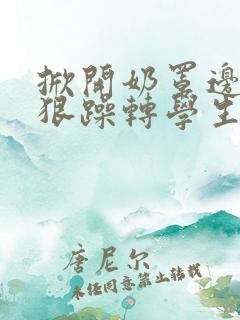 掀開奶罩邊
狠躁轉學生
唐尼尔
未经同意禁止转载